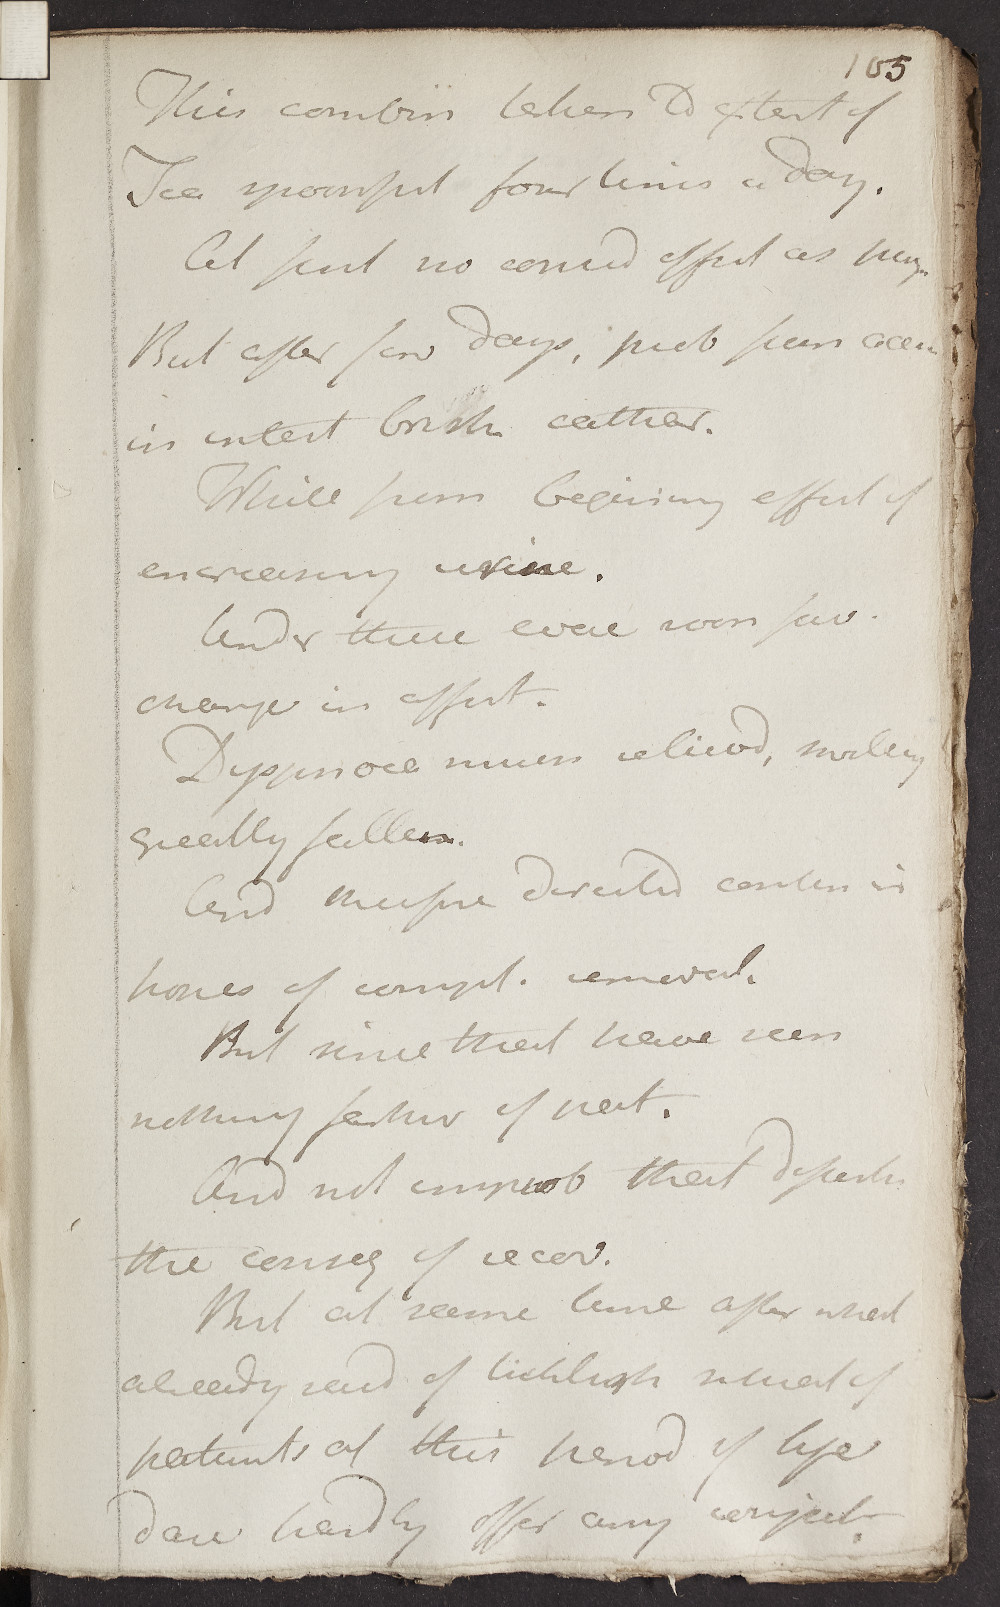 165
This combin taken to extent of
Tea spoonful four times a day.
At first no consid effect as purg.
But after few days, prob from accu
in intest brisk cathar.
While from begining effect of
encreasing urine.
Under these evac soon fav.
change in affect.
Dyspnoea much relievd, swelling
greatly fallen.
And therefore directed contin in
hopes of compl. removal.
But since that have seen
nothing farther of pat.
And not improb that desertn
the conseq of recov.
But at same time after what
already said of ticklish situat of
patients at this period of life
dare hardly offer any conject.